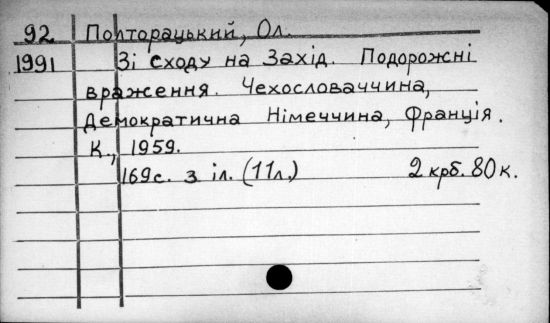 92 Полторацький, Ол.
1991 Зі сходу на Захід. Подорожні
враження. Чехословаччина,
Демократична Німеччина, Франція.
К., 1959.
169с. з іл. (11л.) 2 крб. 80 к.